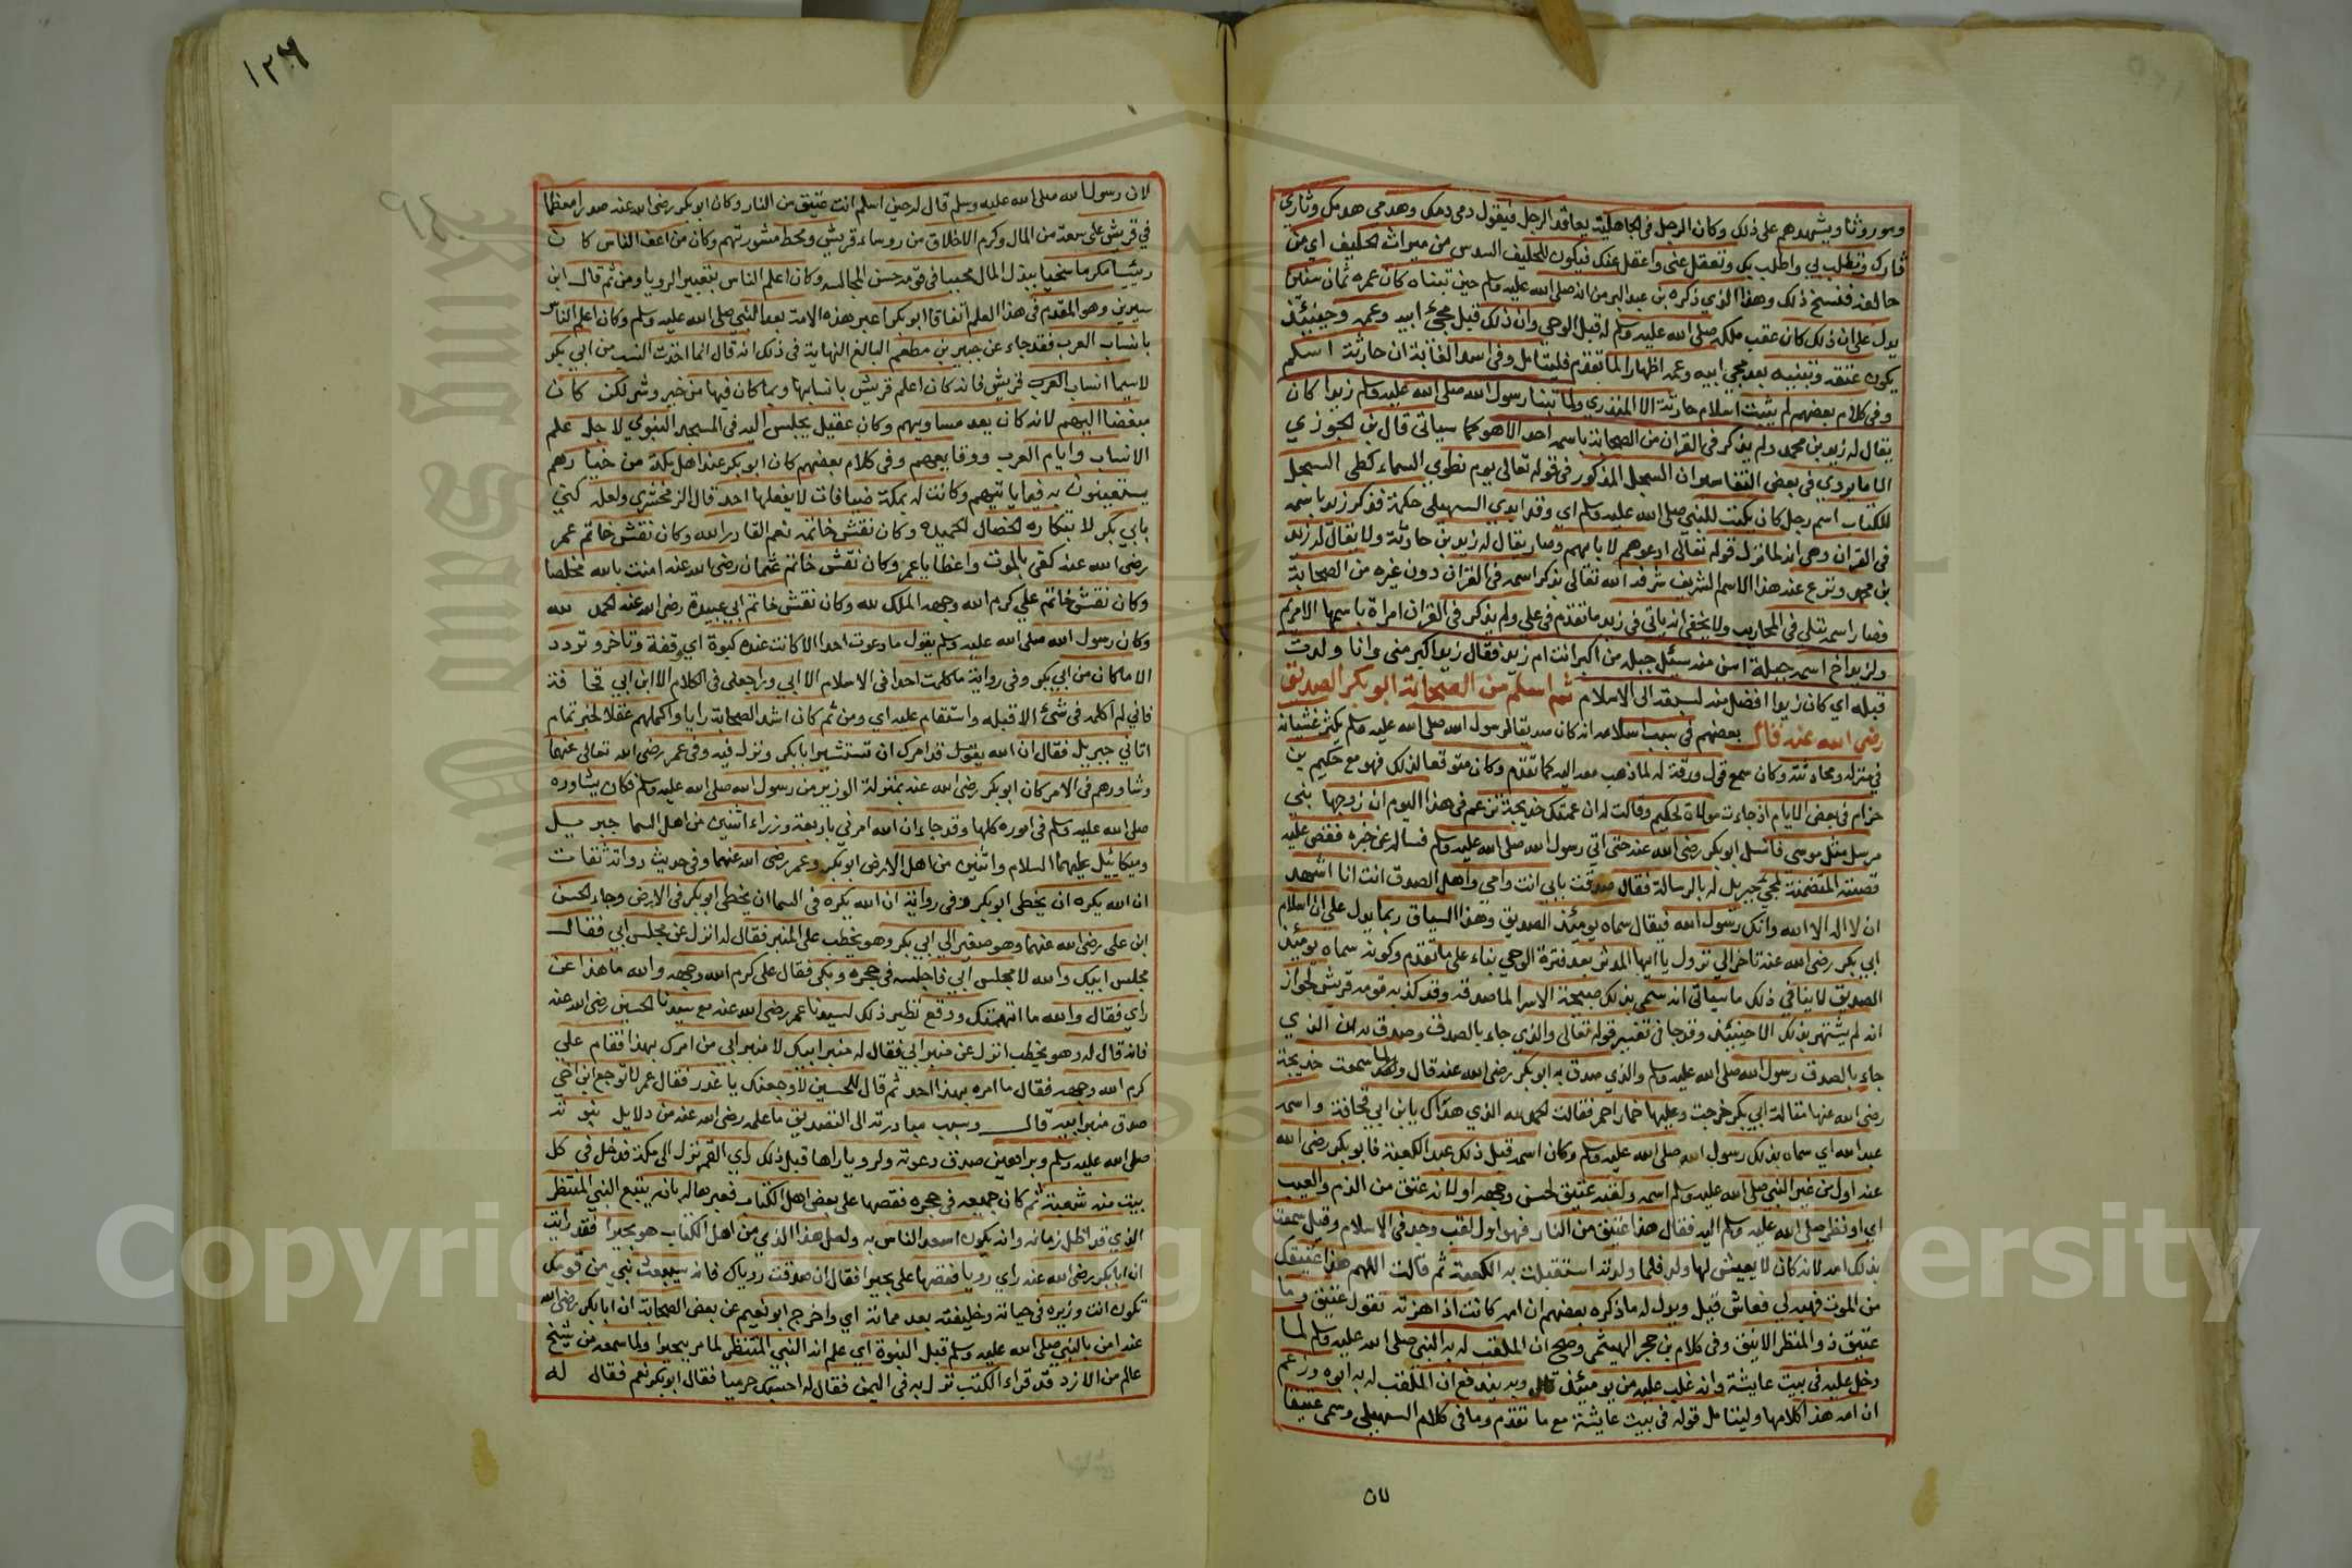 وموروثا ويشهدهم على ذلك وكان الرجل فى الجاهلية يعاقد الرجل فيقول دمى دمك وهدمى هدمك وثارى
ثارك وتطلب بى واطلب بك وتعقل عنى واعقل عنك فيكون للحليف السدس من ميراث الحليف اى من
حالفه فنسخ ذلك وهذا الذى ذكره بن عبد البر من انه صلى الله عليه وسلم حين تبناه كان عمره ثمان سنين
يدل على ان ذلك كان عقب ملكه صلى الله عليه وسلم له قبل الوحى وان ذلك قبل مجئ ابيه وعمه وحينئذ
يكون عتقه وتبنيه بعد مجئ ابيه وعمه اظهارا لما تقدم فليتامل وفى اسد الغابة ان حارثة اسلم
وفى كلام بعضهم لم يثبت اسلام حارثة الا المنذرى ولما تبنا رسول الله صلى الله عليه وسلم زيدا كان
يقال له زيد بن محمد ولم يذكر فى القران من الصحابة باسمه احد الا هو كما سياتى قال بن الجوزى
الا ما يروى فى بعض التفاسير ان السجل المذكور فى قوله تعالى يوم نطوى السماء كطى السجل
للكتاب اسم رجل كان يكتب للنبى صلى الله عليه وسلم اى وقد ابدى السهيلى حكمة فذكر زيد باسمه
فى القران وهى انه لما نزل قوله تعالى ادعوهم لابايهم وصار يقال له زيد بن حارثة ولا يقال له زيد
بن محمد ونزع عنه هذا الاسم الشريف شرفه الله تعالى بذكر اسمه فى القران دون غيره من الصحابة
فصار اسمه يتلى فى المحاريب ولا يخفى انه ياتى فى زيد ما تقدم فى على ولم يذكر فى القران امراة باسمها الا مريم
ولزيد اخ اسمه جبلة اسن منه سيئل جبله من اكبر انت ام زيد فقال زيد اكبر منى وانا ولدت
قبله اى كان زيدا افضل منه لسبقه الى الاسلام ثم اسلم من الصحابة ابو بكر الصديق
رضى الله عنه قال بعضهم فى سبب اسلامه انه كان صديقا لرسول الله صلى الله عليه وسلم يكثر غشيانه
فى منزله ومحادثته وكان سمع قول ورقة له لما ذهب معه اليه كما تقدم وكان متوقعا لذلك فهو مع حكيم بن
حزام فى بعض الايام اذ جاءت مولاة لحكيم وقالت له ان عمتك خديجة تزعم فى هذا اليوم ان زوجها نبى
مرسل مثل موسى فانسل ابو بكر رضى الله عنه حتى اتى رسول الله صلى الله عليه وسلم فساله عن خبره فقص عليه
قصته المتضمنة لمجئ جبريل له بالرسالة فقال صدقت بابى انت وامى واهل الصدق انت انا اشهد
ان لا اله الا الله وانك رسول الله فيقال سماه يومئذ الصديق وهذا السياق ربما يدل على ان اسلام
ابى بكر رضى الله عنه تاخر الى نزول يا ايها المدثر بعد فترة الوحى بناء على ما تقدم وكونه سماه يومئذ
الصديق لا ينافى ذلك ما سياتى انه سمى بذلك صبيحة الاسرا لما صدقه وقد كذبه قومه قريش لجواز
انه لم يشتهر بذلك الا حينئذ وقد جا فى تفسير قوله تعالى والذى جاء بالصدق وصدق به ان الذى
جاء بالصدق رسول الله صلى الله عليه وسلم والذى صدق به ابو بكر رضى الله عنه قال ولما سمعت خديجة
رضى الله عنها مقالة ابى بكر خرجت وعليها خمار احمر فقالت الحمد لله الذى هداك يا بن ابى قحافة واسمه
عبد الله اى سماه بذلك رسول الله صلى الله عليه وسلم وكان اسمه قبل ذلك عبد الكعبة فابو بكر رضى الله
عنه اول من غير النبى صلى الله عليه وسلم اسمه ولقبه عتيق لحسن وجهه او لانه عتق من الذم والعيب
اى او نظر صلى الله عليه وسلم اليه فقال هذا عتيق من النار فهو اول لقب وجد فى الاسلام وقيل سمته
بذلك امه لانه كان لا يعيش لها ولد فلما ولدته استقبلت به الكعبة ثم قالت اللهم هذا عتيقك
من الموت فهبه لى فعاش قيل ويدل له ما ذكره بعضهم ان امه كانت اذا هزته تقول عتيق وما
عتيق ذو المنظر الانيق وفى كلام بن حجر الهيثمى وصح ان الملقب له به النبى صلى الله عليه وسلم لما
دخل عليه فى بيت عايشة وانه غلب عليه من يومئذ قال وبه يندفع ان الملقب له به ابوه وزعم
ان امه هذا كلامها وليتامل قوله فى بيت عايشة مع ما تقدم وما فى كلام السهيلى وسمى عتيقا
٥٧
١٢٦
لان رسول الله صلى الله عليه وسلم قال له حين اسلم انت عتيق من النار وكان ابو بكر رضى الله عنه صدرا معظما
فى قريش على سعة من المال وكرم الاخلاق من روساء قريش ومحط مشورتهم وكان من اعف الناس كان
رييسا مكرما سخيا يبذل المال محببا فى قومه حسن المجالسه وكان اعلم الناس بتعبير الرويا ومن ثم قال ابن
سيرين وهو المقدم فى هذا العلم اتفاقا ابو بكر اعبر هذه الامة بعد النبى صلى الله عليه وسلم وكان اعلم الناس
بانساب العرب فقد جاء عن جبير بن مطعم البالغ النهاية فى ذلك انه قال انما اخذت النسب من ابى بكر
لاسيما انساب العرب قريش فانه كان اعلم قريش بانسابها وبما كان فيها من خير وشر لكن كان
مبغضا اليهم لانه كان يعد مساويهم وكان عقيل يجلس اليه فى المسجد النبوى لاجل علم
الانساب وايام العرب ووقايعهم وفى كلام بعضهم كان ابو بكر عند اهل مكة من خيارهم
يستعينون به فيما ياتيهم وكانت له بمكة ضيافات لا يفعلها احد قال الزمخشرى ولعله كنى
بابى بكر لابتكاره الخصال الحميدة وكان نقش خاتمه نعم القادر الله وكان نقش خاتم عمر
رضى الله عنه كفى بالموت واعظا يا عمر وكان نقش خاتم عثمان رضى الله عنه امنت بالله مخلصا
وكان نقش خاتم على كرم الله وجهه الملك لله وكان نقش خاتم ابى عبيدة رضى الله عنه الحمد لله
وكان رسول الله صلى الله عليه وسلم يقول ما دعوت احدا الا كانت عنده كبوة اى وقفة وتاخر وتردد
الا ما كان من ابى بكر وفى رواية ما كلمت احدا فى الاسلام الا ابى وراجعنى فى الكلام الا ابن ابى قحافة
فانى لم اكلمه فى شئ الا قبله واستقام عليه اى ومن ثم كان اشد الصحابة رايا واكملهم عقلا لخبر تمام
اتانى جبريل فقال ان الله يقول قد امرك ان تستشير ابا بكر ونزل فيه وفى عمر رضى الله تعالى عنهما
وشاورهم فى الامر كان ابو بكر رضى الله عنه بمنزلة الوزير من رسول الله صلى الله عليه وسلم فكان يشاوره
صلى الله عليه وسلم فى اموره كلها وقد جاء ان الله امرنى باربعة وزراء اثنين من اهل السما جبريل
وميكاييل عليهما السلام واثنين من اهل الارض ابو بكر وعمر رضى الله عنهما وفى حديث رواته ثقات
ان الله يكره ان يخطى ابو بكر وفى رواية ان الله يكره فى السما ان يخطى ابو بكر فى الارض وجاء الحسن
ابن على رضى الله عنهما وهو صغير الى ابى بكر وهو يخطب على المنبر فقال له انزل عن مجلس ابى فقال
مجلس ابيك والله لا مجلس ابى فاجلسه فى حجره وبكى فقال على كرم الله وجهه والله ما هذا عن
راى فقال والله ما اتهمتك ووقع نظير ذلك لسيدنا عمر رضى الله عنه مع سيدنا الحسين رضى الله عنه
فانه قال له وهو يخطب انزل عن منبر ابى فقال له منبر ابيك لا منبر ابى من امرك بهذا فقام على
كرم الله وجهه فقال ما امره بهذا احد ثم قال للحسين لاوجعنك يا غدر فقال عمر لا توجع ابن اخى
صدق منبر ابيه قال وسبب مبادرته الى التصديق ما علمه رضى الله عنه من دلايل نبوته
صلى الله عليه وسلم وبراهين صدق دعوته ولرويا راها قبل ذلك راى القمر نزل الى مكة فدخل فى كل
بيت منه شعبة ثم كان جميعه فى حجره فقصها على بعض اهل الكتاب فعبرها له بانه يتبع النبى المنتظر
الذى قد اظل زمانه وانه يكون اسعد الناس به ولعل هذا الذى من اهل الكتاب هو بحيرا فقد رايت
ان ابا بكر رضى الله عنه راى رويا فقصها على بحيرا فقال ان صدقت روياك فانه سيبعث نبى من قومك
تكون انت وزيره فى حياته وخليفته بعد مماته اى واخرج ابو نعيم عن بعض الصحابة ان ابا بكر رضى الله
عنه امن بالنبى صلى الله عليه وسلم قبل النبوة اى علم انه النبى المنتظر لما مر ببحيرا ولما سمعه من شيخ
عالم من الازد قد قراء الكتب نزل به فى اليمن فقال له احسبك حرميا فقال ابو بكر نعم فقال له
Copyright © King Saud University